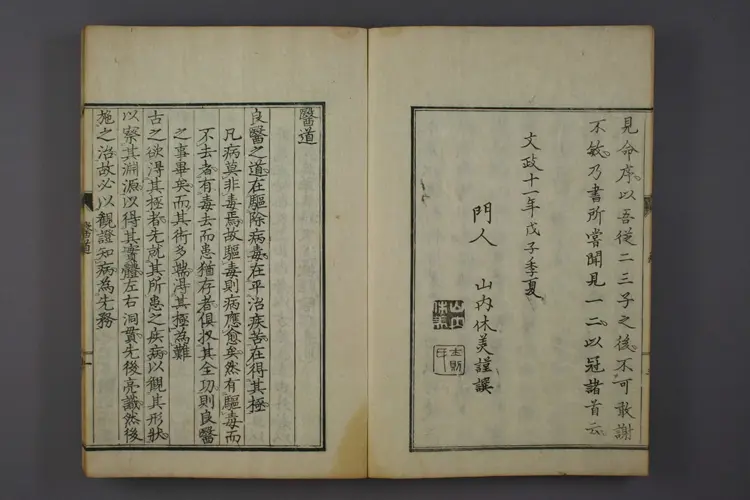 見命序以吾從二三子之後不可敢謝
不敏乃書所嘗聞見一二以冠諸首云
文政十一年戊子季夏
門人 山内休美謹譔
山内
休美
醫道
良醫之道在驅除病毒在平治疾苦在得其極
凡病莫非毒焉故驅毒則病應愈矣然有驅毒而
不去者有毒去而患猶存者俱收其全功則良醫
之事畢矣而其術多端得其極為難
古之欲得其極者先就其所患之疾病以觀其形狀
以察其淵源以得其實體左右洞貫先後亮識然後
施之治故必以觀證知病為先務
醫道
一